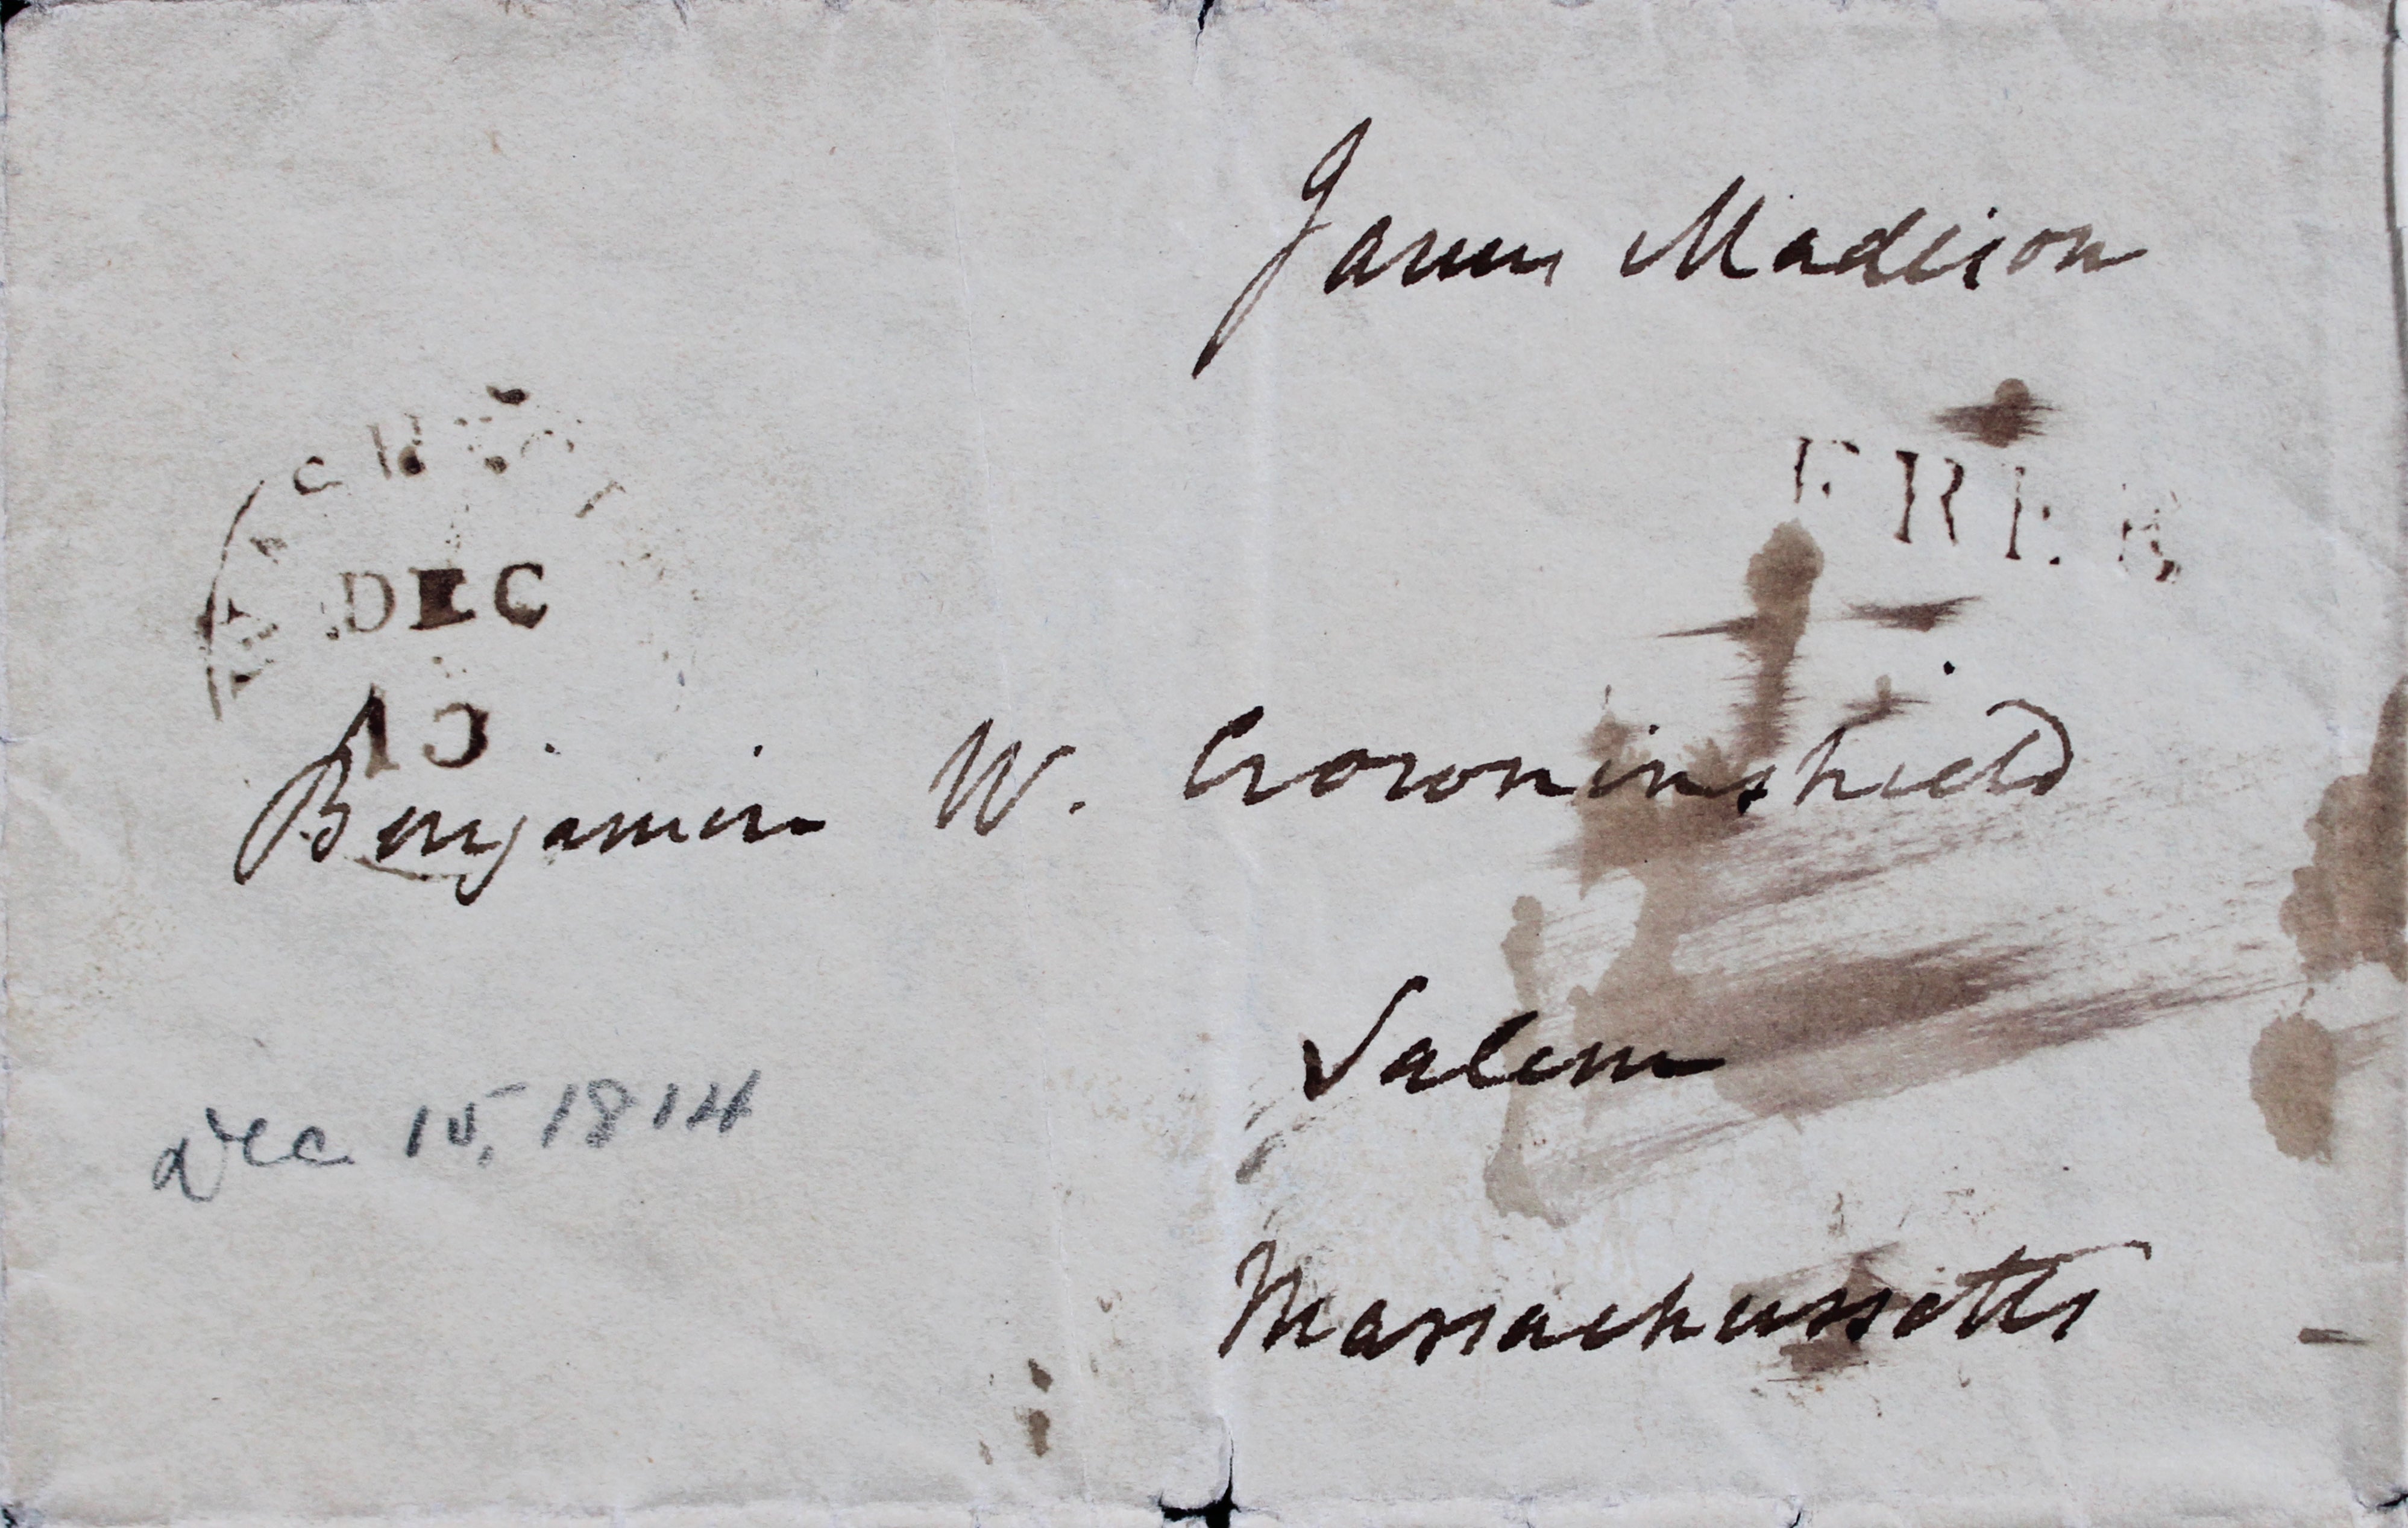 James Madison
FREE
WASHI
DEC
15
Benjamin W. Crowninshield
Salem
Dec 15, 1814
Massachussetts